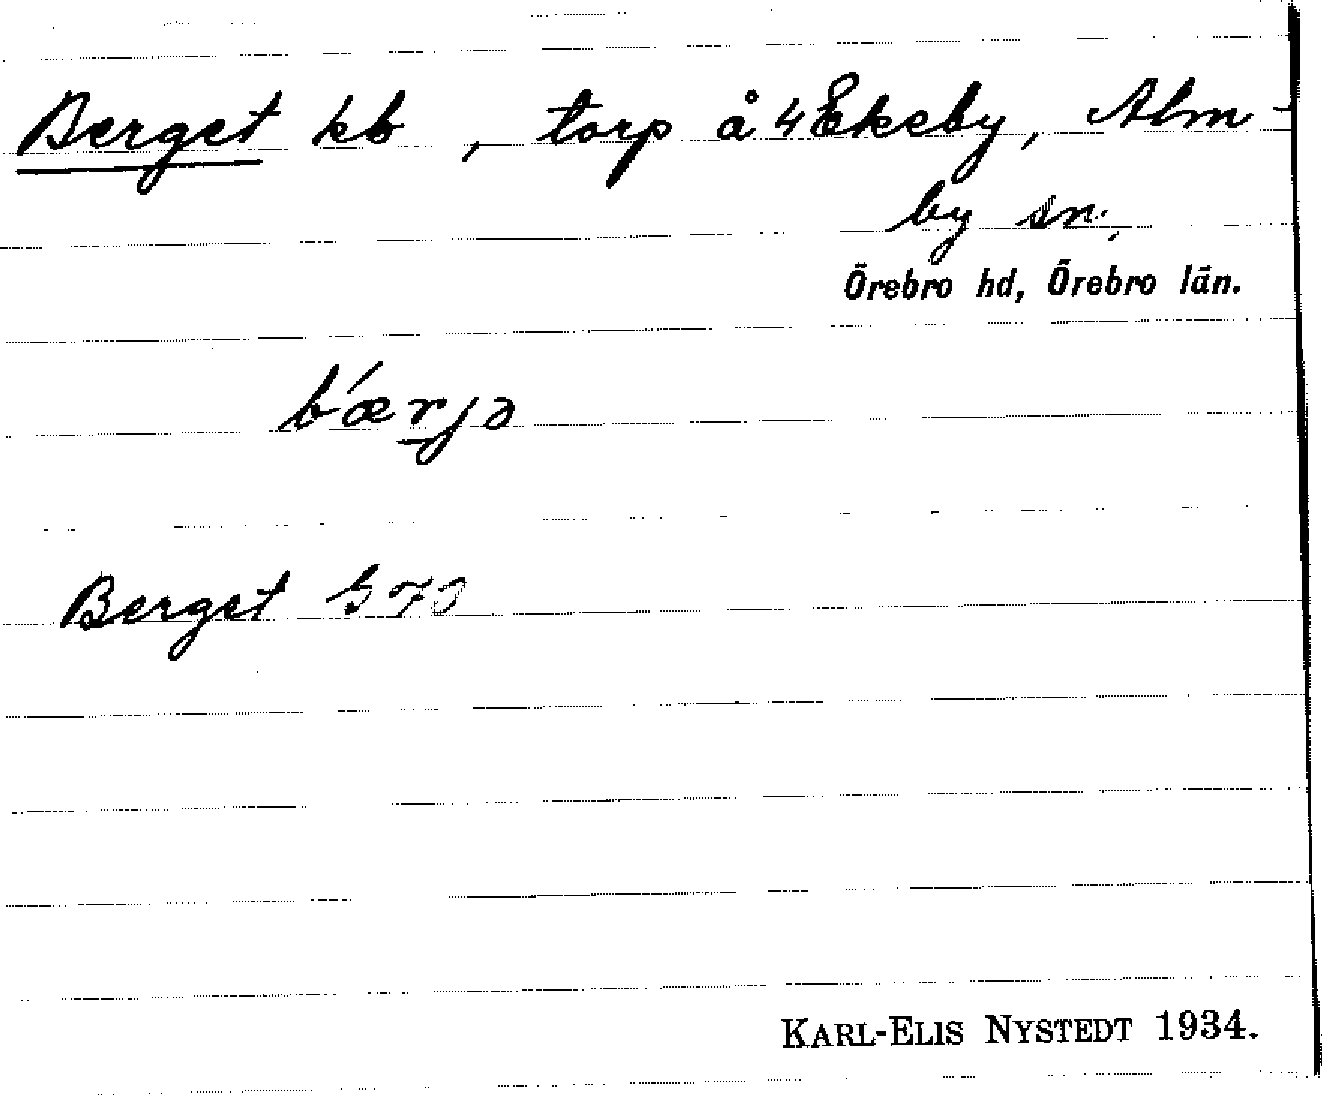 Berget kb, torp å 4 Ekeby, Alm-
by sn,
Örebro hd, Örebro län.
bǽrjə
Berget
KARL-ELIS NYSTEDT 1934.